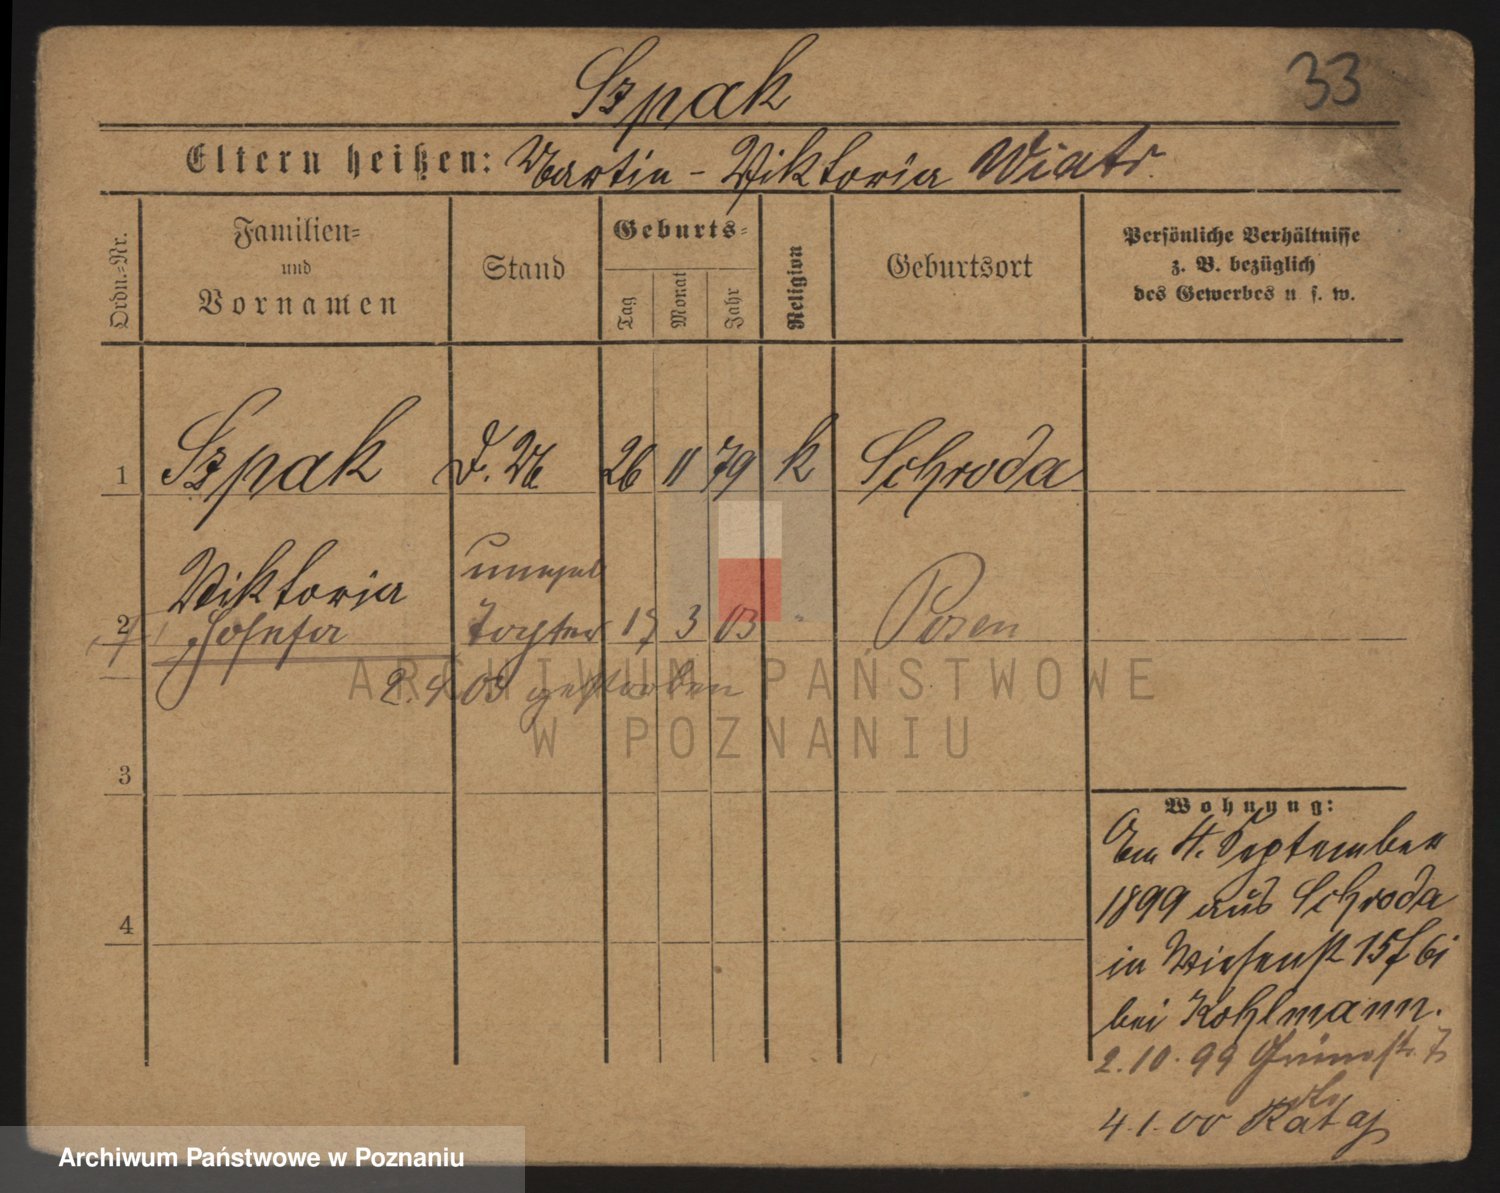 Szpak
33
Eltern heißen: Martin - Viktoria Wiatr.
Ordn.=Nr.
Familien=
und
Vornamen
Stand
Geburts=
Tag
Monat
Jahr
Religion
Geburtsort
Persönliche Verhältnisse
z. B. bezüglich
des Gewerbes u. s. w.
1 Szpak D. M. 26 11 79 k Schroda
Viktoria unehel
2 Josefa Tochter 17 3 03 " Posen
2.4.03 gestorben
3
4
Wohnung:
Am 4. September
1899 aus Schroda
in Wiesenst 15
bei Kohlmann.
2.10.99
4.1.00 Rataj
ARCHIWUM PAŃSTWOWE
W POZNANIU
Archiwum Państwowe w Poznaniu